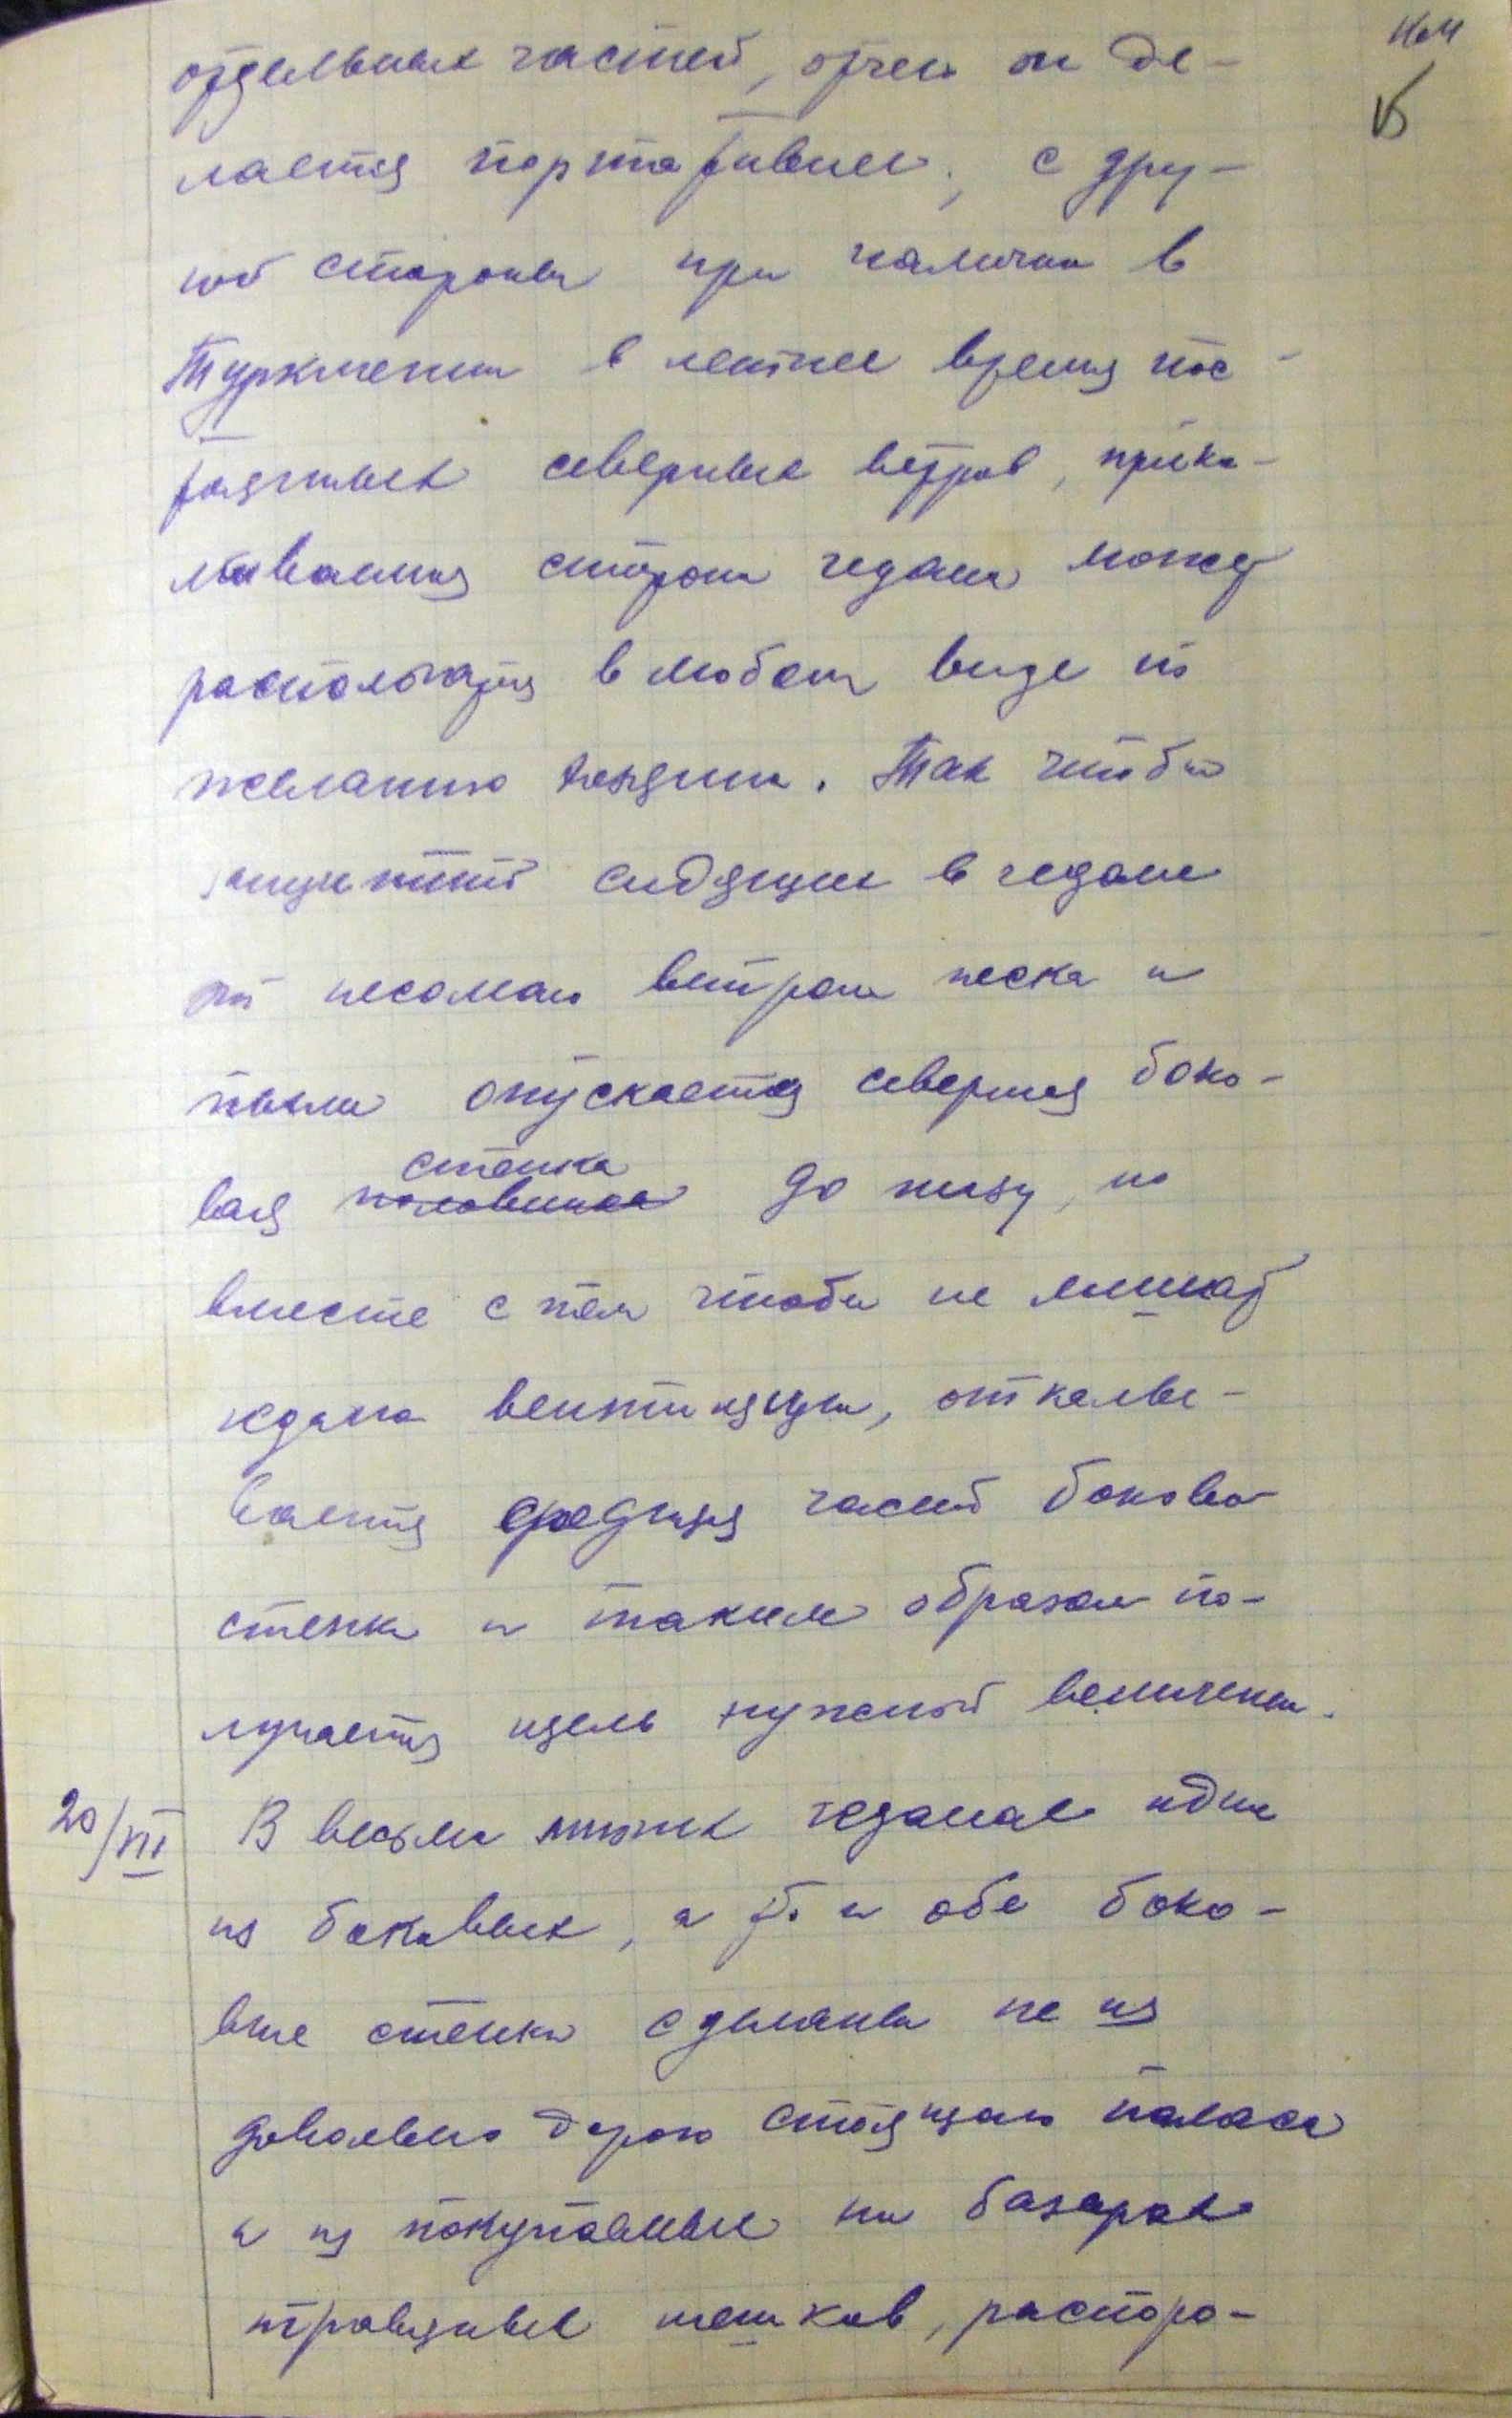 отдельных частей, отчего он де-
лается портативным; с дру-
гой стороны при наличии в
Туркмении в летнее время пос-
тоянных северных ветров, прика-
лываемая сторона гедана может
располагаться в любом виде по
желанию владельца. Так чтобы
защитить сидящих в гедане
от несомого ветром песка и
пыли опускается северная боко-
вая стенка половинка до низу, но
вместе с тем чтобы не лишать
гедана вентиляции, откалы-
вается средняя часть боковой
стенки и таким образом по-
лучается щель нужной величины.
20/III В весьма многих геданах одна
из боковых, а то и обе боко-
вые стенки сделаны не из
довольно дорого стоящего паласа
а из покупаемых на базарах
травяных мешков, распоро-